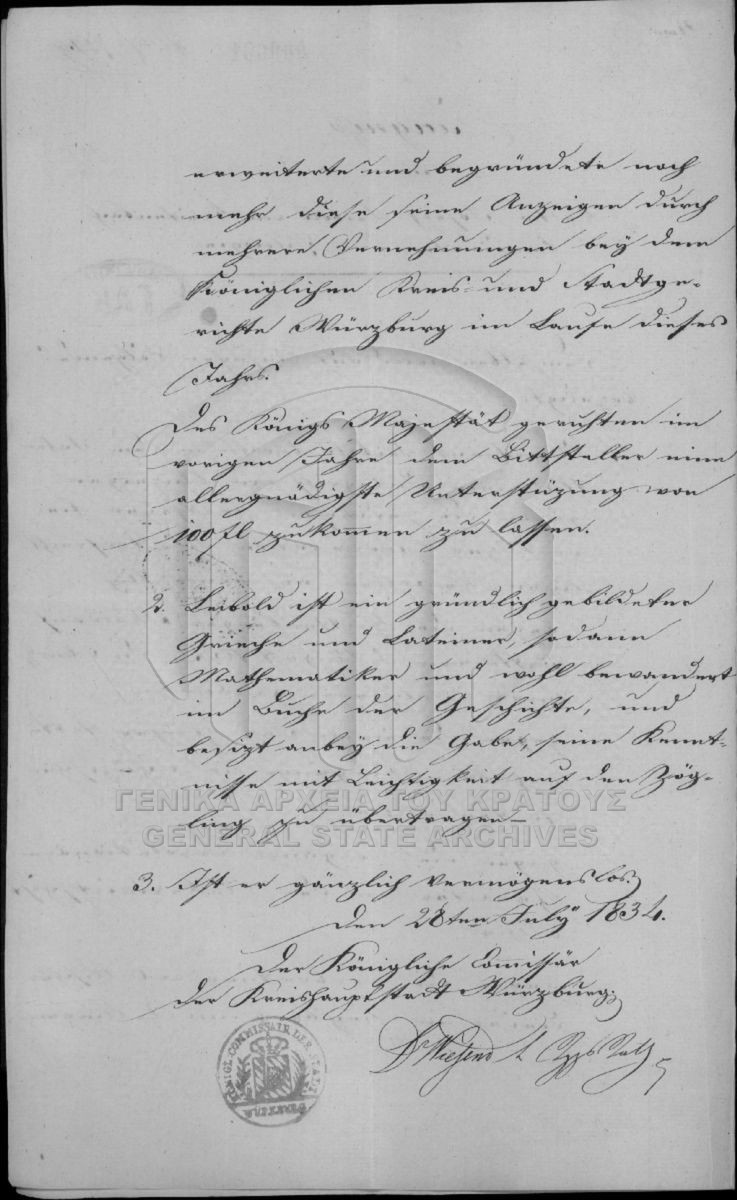 erweiterte und begründete noch
mehr diese seine Anzeigen durch
mehrere Vernehmungen bey dem
Königlichen Kreis- und Stadtge-
richte Würzburg im Laufe dieses
Jahrs.
Des Königs Majestät geruhten im
vorigen Jahre dem Bittsteller eine
allergnädigste Unterstüzung von
100 fl zukommen zu lassen.
2. Leibold ist ein gründlich gebildeter
Grieche und Lateiner, sodann
Mathematiker und wohl bewandert
im Buche der Geschichte, und
besizt anbey die Gabe, seine Kennt-
nisse mit Leichtigkeit auf den Zög-
ling zu übertragen –
ΓΕΝΙΚΑ ΑΡΧΕΙΑ ΤΟΥ ΚΡΑΤΟΥΣ
GENERAL STATE ARCHIVES
3. Ist er gänzlich vermögenslos.
Den 28ten July 1834.
Der Königliche Commissär
der Kreishauptstadt Würzburg.
Dr Wiesend
KÖNIGL. COMMISSAIR DER STADT WÜRZBURG